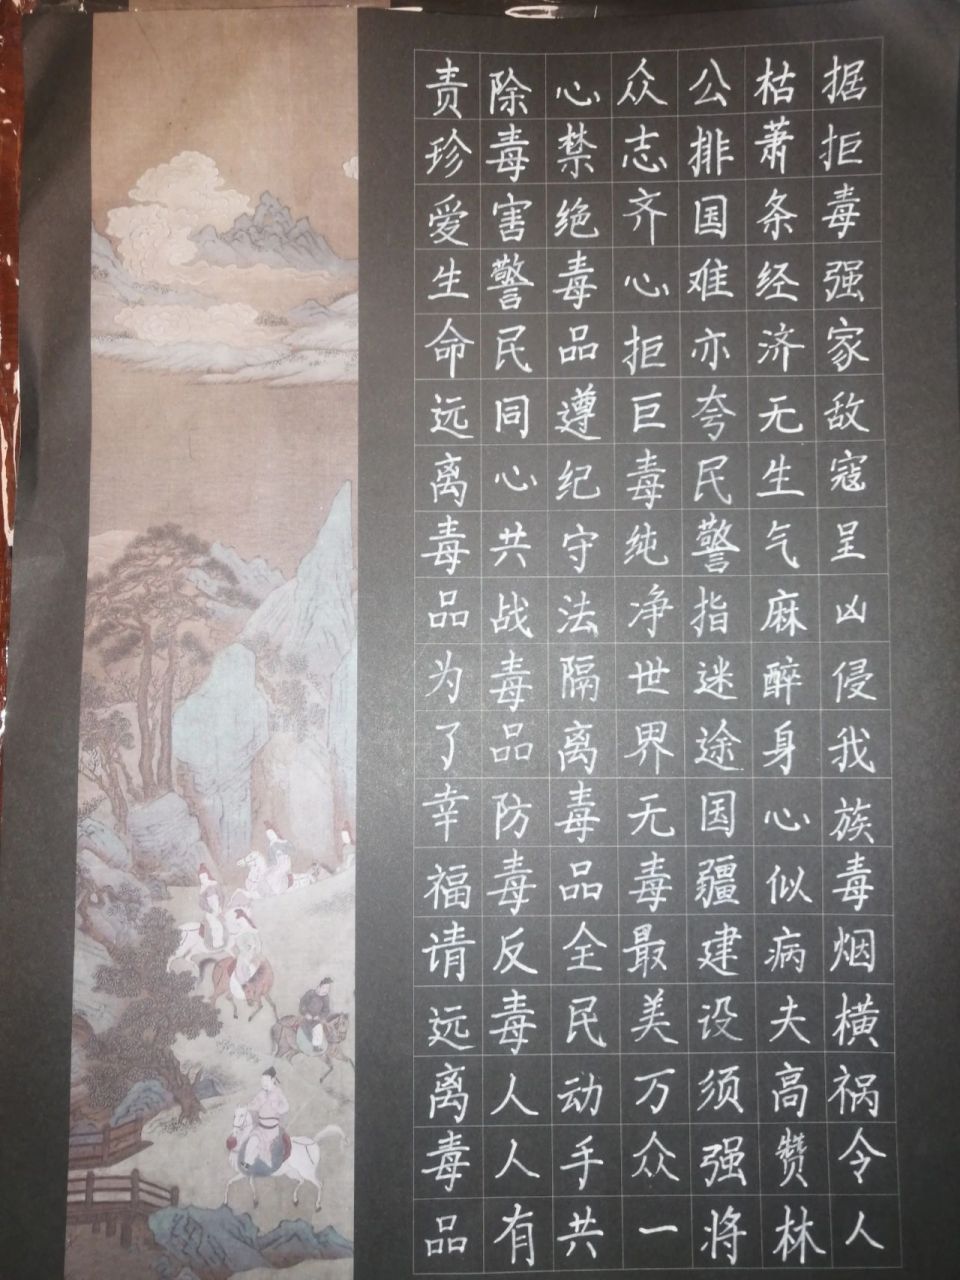 据拒毒强家敌寇呈凶侵我族毒烟横祸令人
枯萧条经济无生气麻醉身心似病夫高赞林
公排国难亦夸民警指迷途国疆建设须强将
众志齐心拒巨毒纯净世界无毒最美万众一
心禁绝毒品遵纪守法隔离毒品全民动手共
除毒害警民同心共战毒品防毒反毒人人有
责珍爱生命远离毒品为了幸福请远离毒品